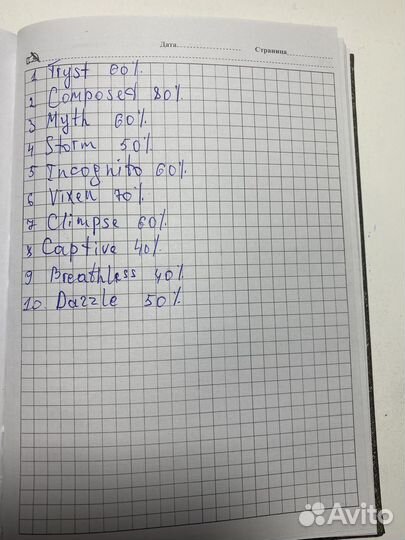 Дата
Страница
1 Tryst 60%
2 Composed 80%
3 Myth 60%
4 Storm 50%
5 Incognito 60%
6 Vixen 70%
7 Climpse 60%
8 Captive 40%
9 Breathless 40%
10. Dazzle 50%
Avito